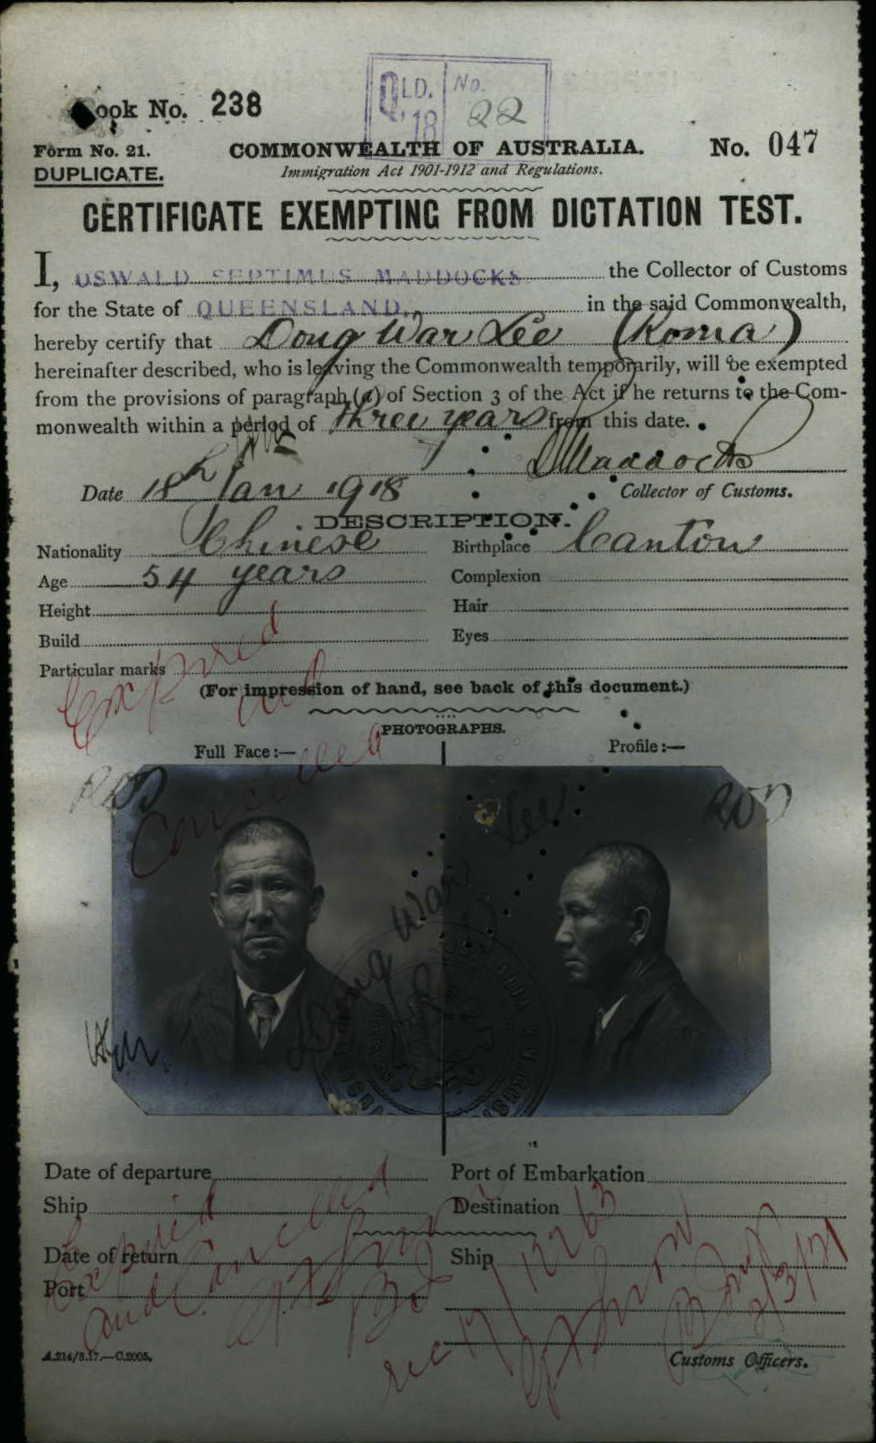 QLD. No.
'18 22
Book No. 238
Form No. 21. COMMONWEALTH OF AUSTRALIA. No. 047
DUPLICATE. Immigration Act 1901-1912 and Regulations.
CERTIFICATE EXEMPTING FROM DICTATION TEST.
I, OSWALD SEPTIMUS MADDOCKS the Collector of Customs
for the State of QUEENSLAND, in the said Commonwealth,
hereby certify that Doug War Lee (Roma)
hereinafter described, who is leaving the Commonwealth temporarily, will be exempted
from the provisions of paragraph (a) of Section 3 of the Act if he returns to the Com-
monwealth within a period of three years from this date.
OMaddocks
Date 18th Jan 1918 Collector of Customs.
DESCRIPTION.
Nationality Chinese Birthplace Canton
Age 54 years Complexion
Height Hair
Build Eyes
Particular marks
Expired
(For impression of hand, see back of this document.)
and
PHOTOGRAPHS.
Full Face:— Profile:—
Cancelled
Doug War Lee
Date of departure Port of Embarkation
Ship Destination
Date of return Ship
Port
Expired
and Cancelled
A.214/8.17.—C.2005. Customs Officers.